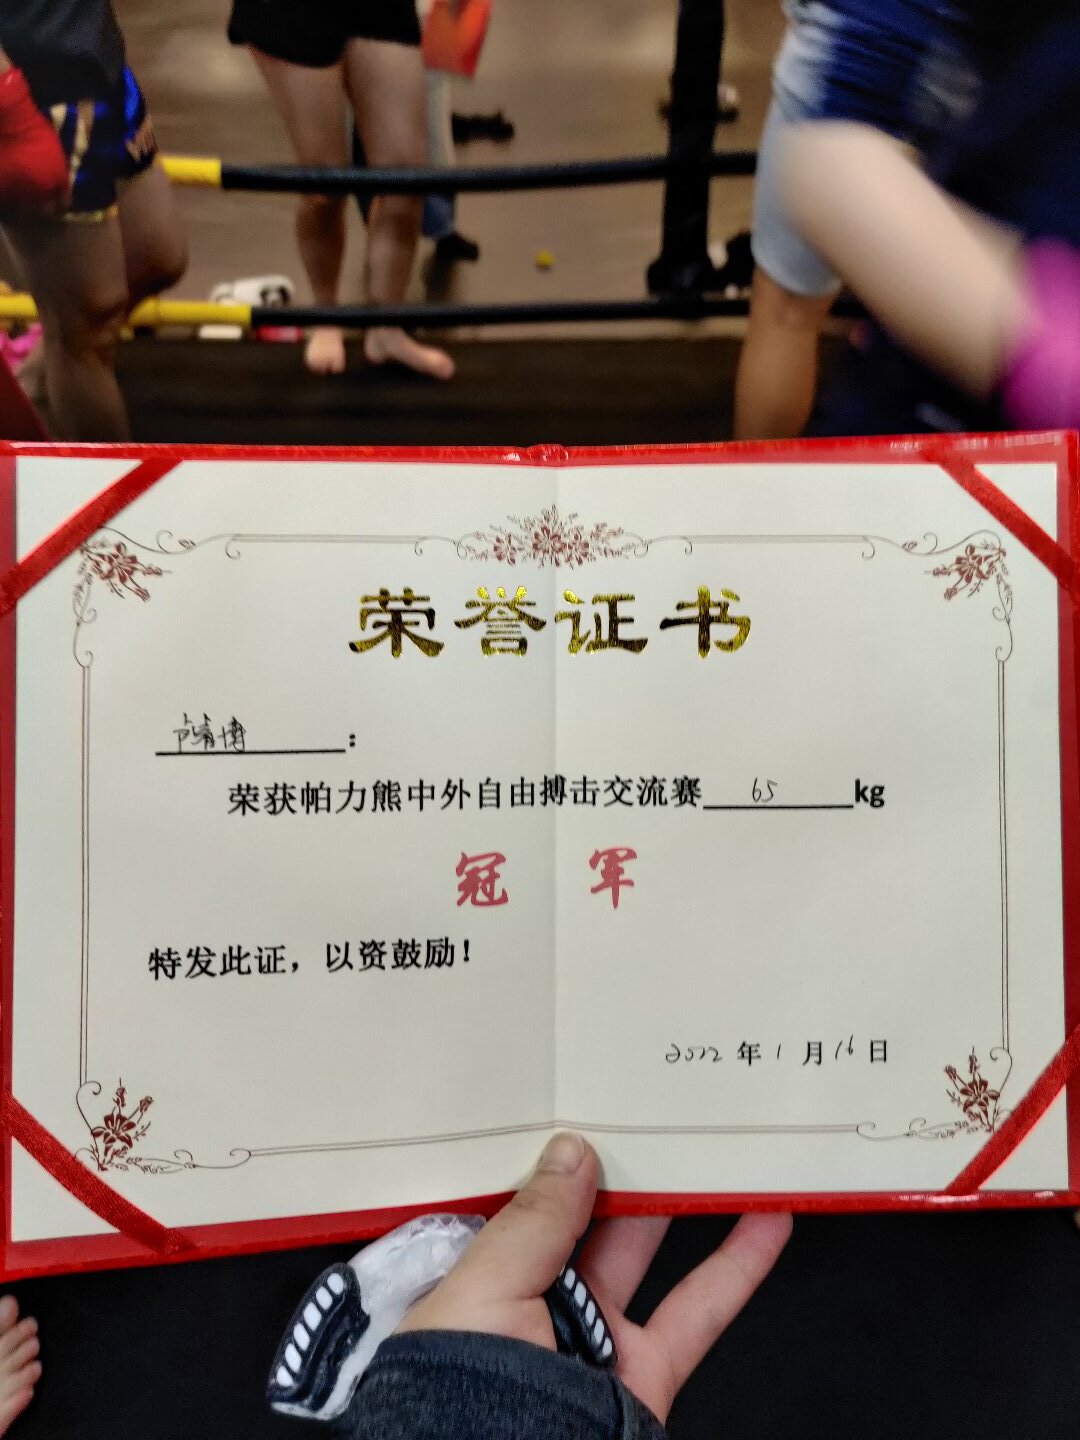 荣誉证书
：
荣获帕力熊中外自由搏击交流赛 65 kg
冠军
特发此证，以资鼓励！
2022年1月16日